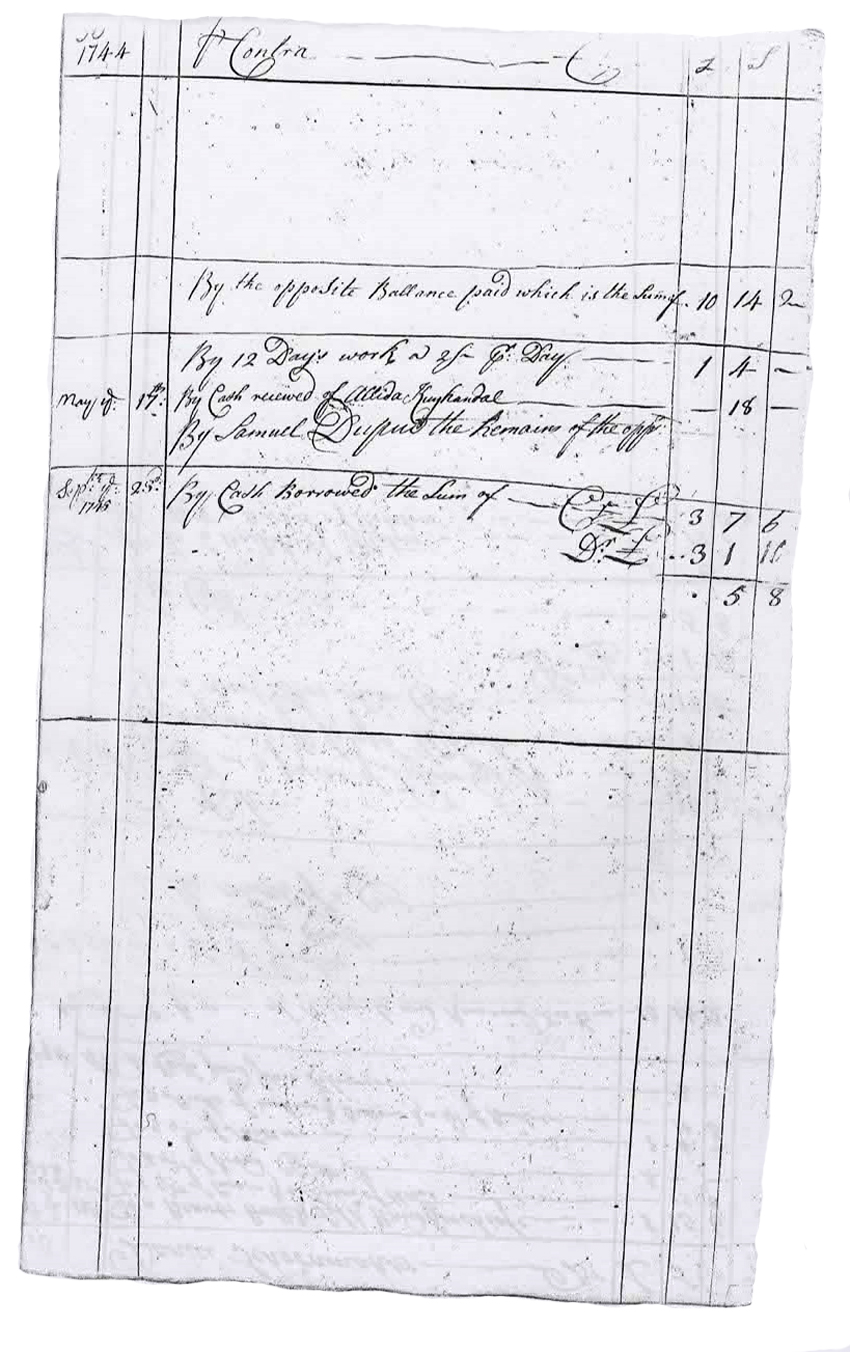 1744 Pr Contra — — — Cr £ S
By the opposite Ballance paid which is the Sum of . 10 14 2
By 12 Day's work a 2/– Pr Day — 1 4 –
May ye 17th By Cash recieved of Allida Kuykandal — – 18 –
By Samuel Dupui the Remains of the oppt
Septbr ye 23d By Cash Borrowed the Sum of — Cr £ 3 7 6
1745
Dr £ .. 3 1 10
. 5 8